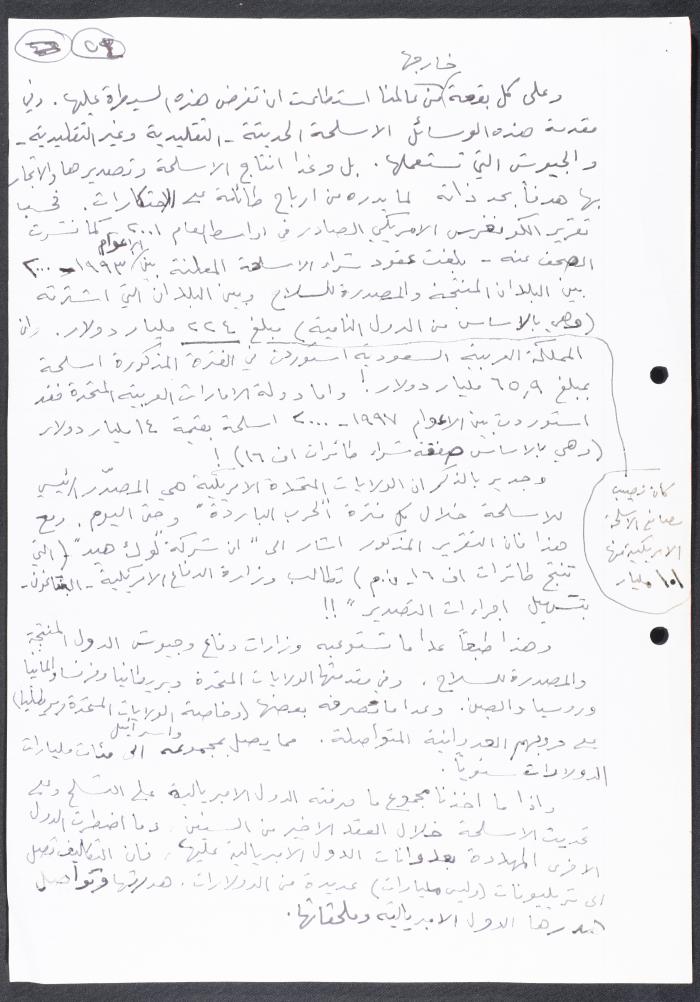 ٥٩
خارجها
وعلى كل بقعة من عالمنا استطاعت ان تفرض هذه السيطرة عليها. وفي
مقدمة هذه الوسائل الاسلحة الحديثة - التقليدية وغير التقليدية -
والجيوش التي تستعملها. بل وغدا انتاج الاسلحة وتصديرها والاتجار
بها هدفاً بحد ذاته لما يدره من ارباح طائلة على الاحتكارات. فحسب
تقرير الكونغرس الامريكي الصادر في اواسط العام ٢٠٠١ - كما نشرت
الصحف عنه - بلغت عقود شراء الاسلحة المعلنة بين الاعوام ١٩٩٣ - ٢٠٠٠
بين البلدان المنتجة والمصدرة للسلاح وبين البلدان التي اشترته
(وهي بالاساس من الدول النامية) بلغ ٢٢٤ مليار دولار. وان
المملكة العربية السعودية استوردت في الفترة المذكورة اسلحة
بمبلغ ٦٥,٩ مليار دولار! واما دولة الامارات العربية المتحدة فقد
استوردت بين الاعوام ١٩٩٧ - ٢٠٠٠ اسلحة بقيمة ١٤ مليار دولار
(وهي بالاساس صفقة شراء طائرات اف ١٦)!
كان نصيب
مصانع الاسلحة
الامريكية منها
١٠١ مليار
وجدير بالذكر ان الولايات المتحدة الامريكية هي المصدّر الرئيسي
للاسلحة خلال كل فترة "الحرب الباردة" وحتى اليوم. ومع
هذا فان التقرير المذكور اشار الى "ان شركة "لوكهيد" (التي
تنتج طائرات اف ١٦ - ن.م) تطالب وزارة الدفاع الامريكية - البنتاغون -
بتسهيل اجراءات التصدير"!!
وهذا طبعاً عدا ما تستوعبه وزارات دفاع وجيوش الدول المنتجة
والمصدرة للسلاح. وفي مقدمتها الولايات المتحدة وبريطانيا وفرنسا والمانيا
وروسيا والصين. وعدا ما تصرفه بعضها (وخاصة الولايات المتحدة وبريطانيا
واسرائيل)
على حروبهم العدوانية المتواصلة. مما يصل بمجموعه الى مئات مليارات
الدولارات سنوياً.
واذا ما اخذنا مجموع ما صرفته الدول الامبريالية على التسلح وعلى
تحديث الاسلحة خلال العقد الاخير من السنين، وما اضطرت الدول
الاخرى المهددة بعدوانات الدول الامبريالية عليها، فان التكاليف تصل
الى تريليونات (وليس مليارات) عديدة من الدولارات. هدرتها وتواصل
هدرها الدول الامبريالية وملحقاتها.